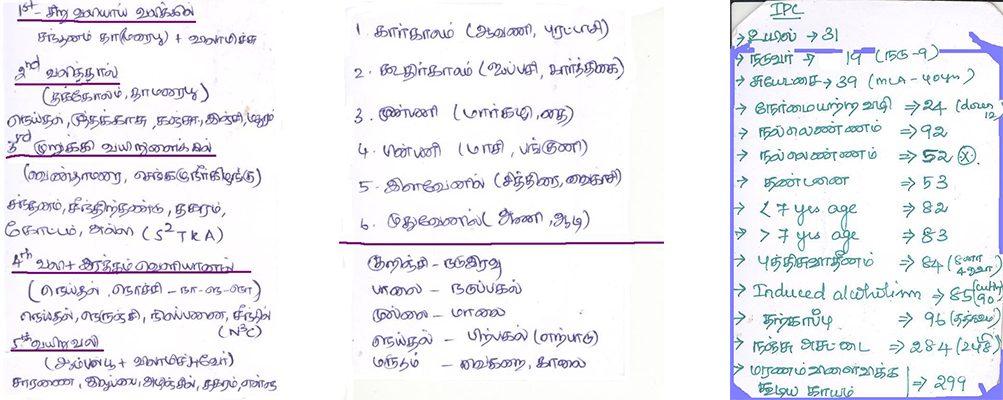 1st - சிறு வலியாய் வலிக்கில்
சந்தனம் தாமரைபூ + விலாமிச்சு
2nd வலித்தால்
(தக்கோலம், தாமரைபூ)
நெய்தல், முத்தக்காசு, கஞ்சா, இஞ்சி,
3rd முறுக்கி வயிறுளைக்கில்
(வெண்தாமரை, செங்கழுநீர்கிழங்கு)
சந்தனம், சீந்திற்தண்டு, தகரம்,
கோட்டம், அல்லி (S²TKA)
4th வலி + இரத்தம் வெளியானால்
(நெய்தல், நொச்சி -
நெய்தல், நெருஞ்சி, நிலப்பனை, சீந்தில்
(N³C)
5th வயிறுவலி
(ஆம்பல்பூ + விலாமிச்சுவேர்)
சாரணை, இலுப்பை, அதிந்தில், தகரம்,
1. கார்காலம் (ஆவணி, புரட்டாசி)
2. கூதிர்காலம் (ஐப்பசி, கார்த்திகை)
3. முன்பனி (மார்கழி, தை)
4. பின்பனி (மாசி, பங்குனி)
5. இளவேனில் (சித்திரை, வைகாசி)
6. முதுவேனில் (ஆணி, ஆடி)
குறிஞ்சி - நடுஇரவு
பாலை - நடுப்பகல்
முல்லை - மாலை
நெய்தல் - பிற்பகல் (எற்பாடு)
மருதம் - வைகறை, காலை
IPC
→ உயில் → 31
→ நடுவர் → 19 (நடு-9)
→ சுயேட்சை → 39 (MLA - 40yrs)
→ நேர்மையற்ற வழி ⇒ 24 (down 12
→ நல்லெண்ணம் ⇒ 92
→ நல்லெண்ணம் ⇒ 52 (x).
→ தண்டனை ⇒ 53
→ < 7 yrs age ⇒ 82
→ > 7 yrs age ⇒ 83
→ புத்திசுவாதீனம் ⇒ 84
→ Induced alcoholism ⇒ 85
→ தற்காப்பு ⇒ 96
→ நஞ்சு அசட்டை ⇒ 284
→ மரணம் விளைவிக்க
கூடிய காயம் ⇒ 299